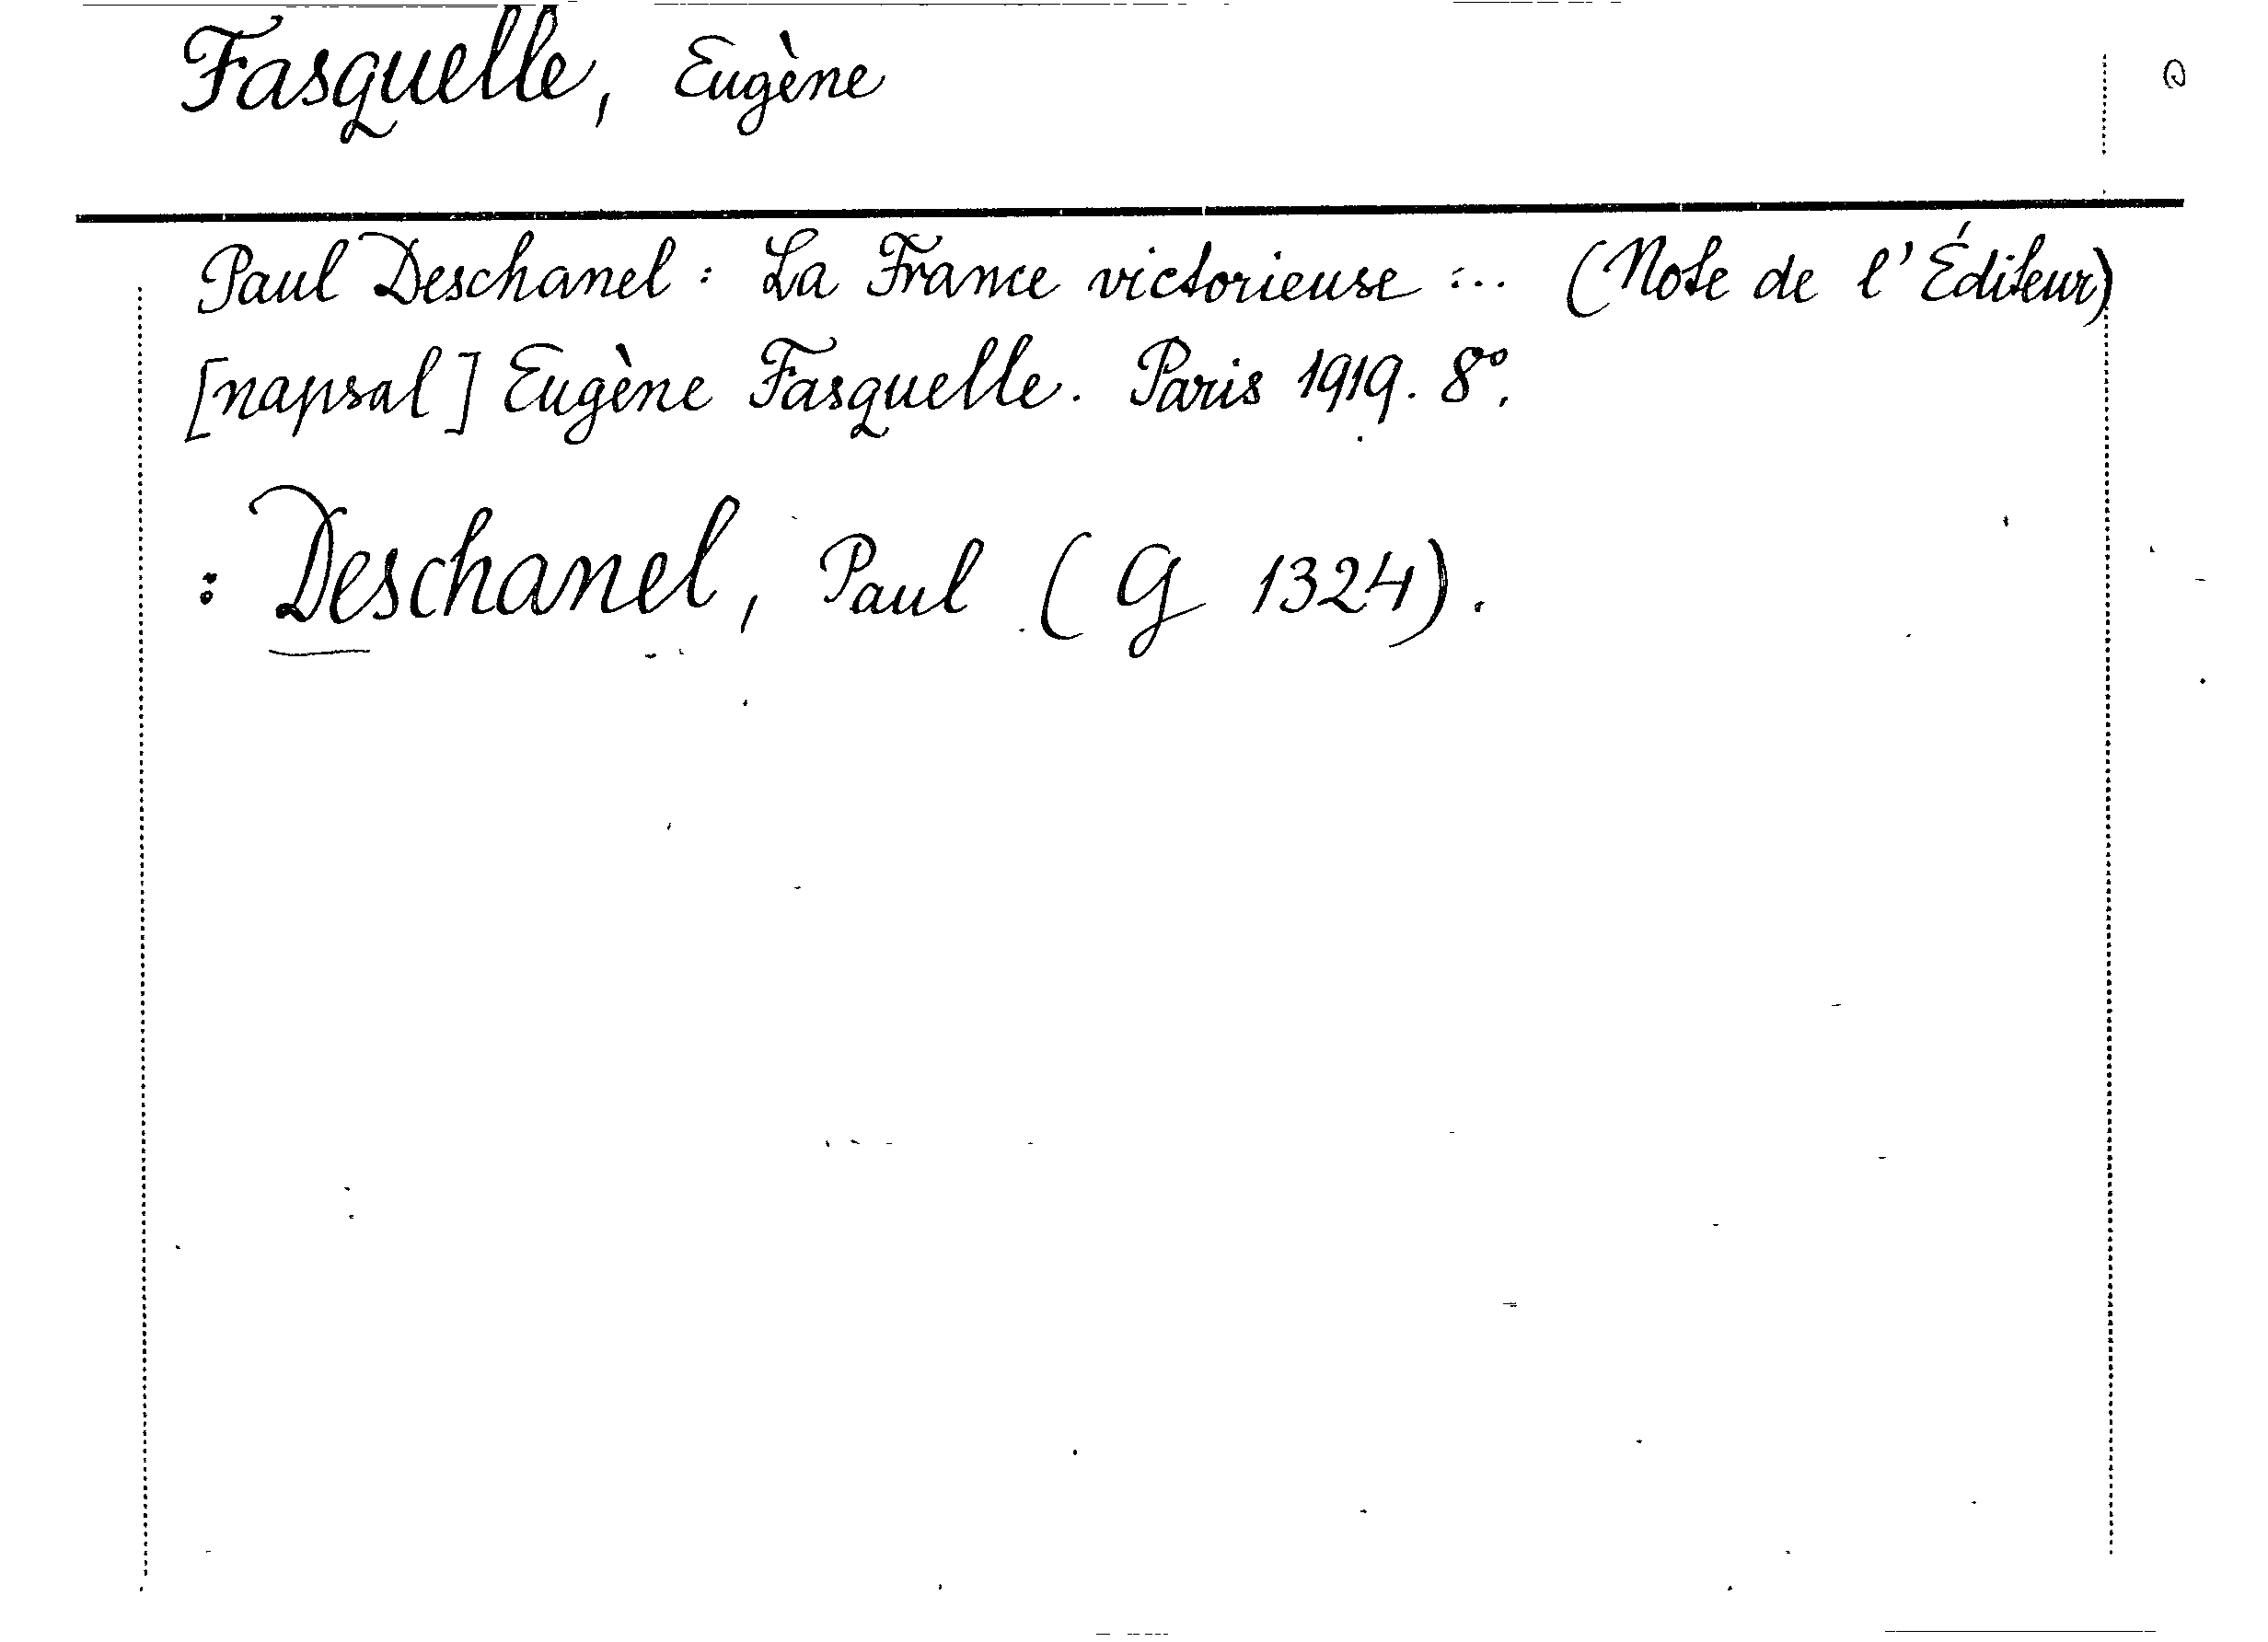 Fasquelle, Eugène
Paul Deschanel: La France victorieuse :.. (Note de l'Éditeur)
[napsal] Eugène Fasquelle. Paris 1919. 8°.
: Deschanel, Paul (G 1324).